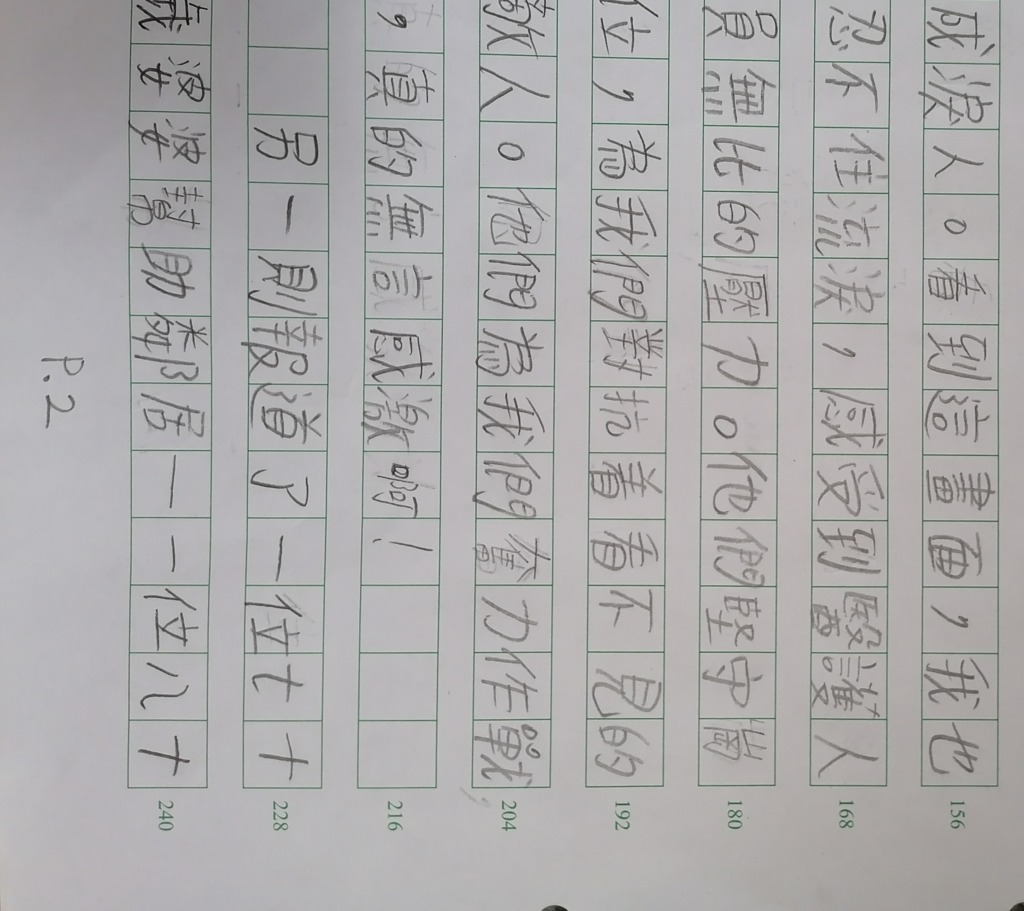 成淚人。看到這畫面，我也 156
忍不住流淚，感受到醫護人 168
員無比的壓力。他們堅守崗 180
位，為我們對抗着看不見的 192
敵人。他們為我們奮力作戰 204
，真的無言感激啊！ 216
另一則報道了一位七十 228
歲婆婆幫助鄰居一一位八十 240
P.2